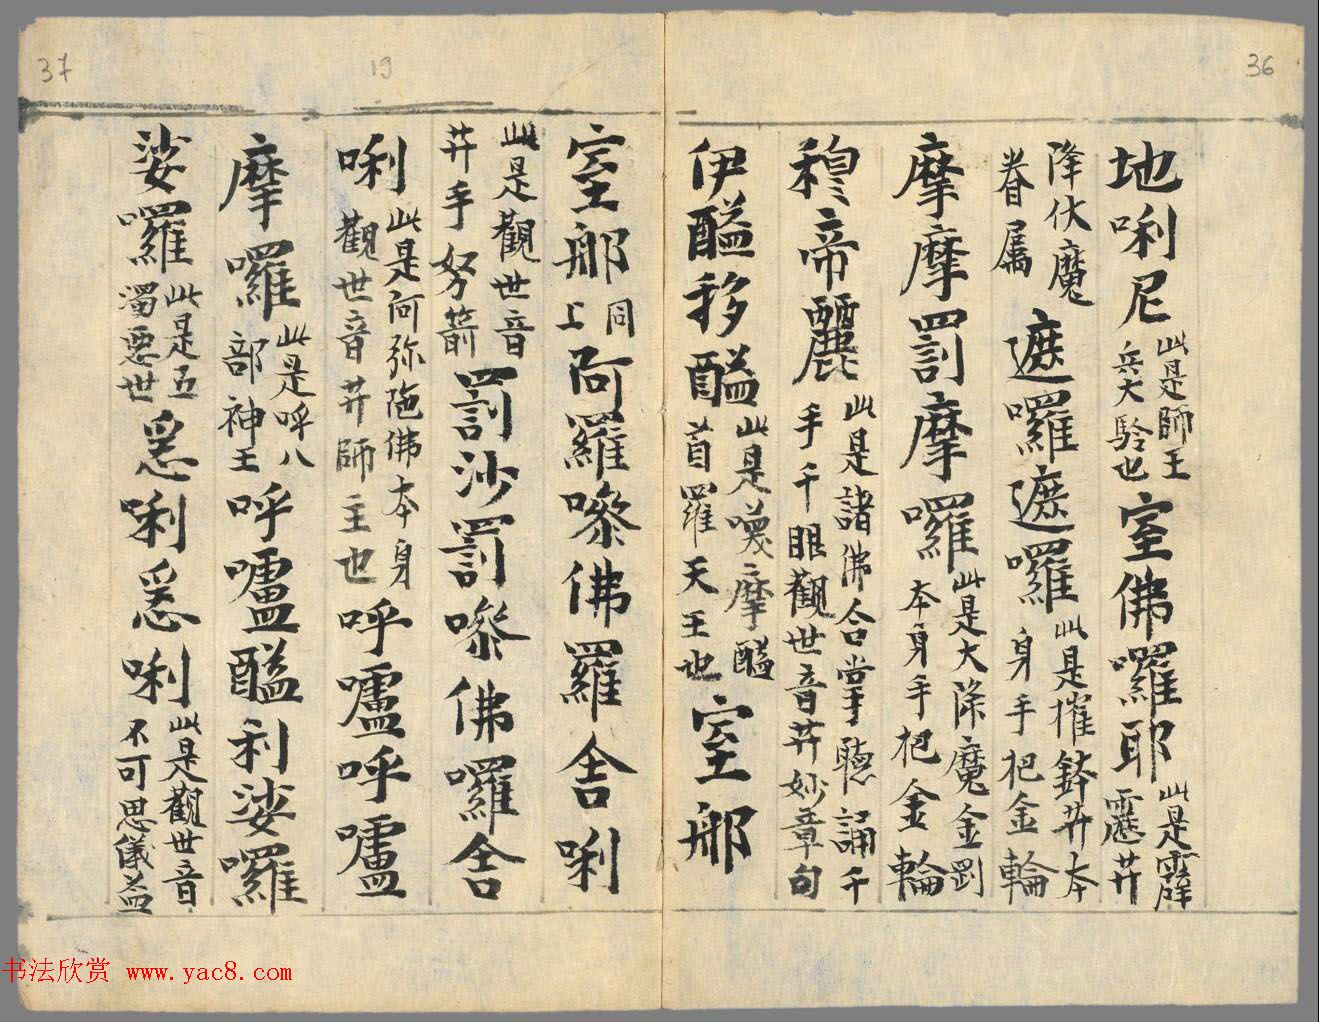 36
地唎尼此是師王兵大驗也室佛囉耶此是霹靂井
降伏魔眷属遮囉遮囉此是摧鉢井本身手把金輪
摩摩罰摩囉此是大降魔金剛本身手把金輪
穆帝麗此是諸佛合掌聽誦千手千眼觀世音井妙章句
伊醯移醯此是嘆摩醯首羅天王也室那
37
19
室那同上阿羅嘇佛羅舍唎
此是觀世音井手努箭罰沙罰嘇佛囉舍
唎此是阿弥陁佛本身觀世音井師主也呼嚧呼嚧
摩囉此是呼八部神王呼嚧醯利娑囉
娑囉此是五濁惡世悉唎悉唎此是觀世音不可思儀益
书法欣赏 www.yac8.com